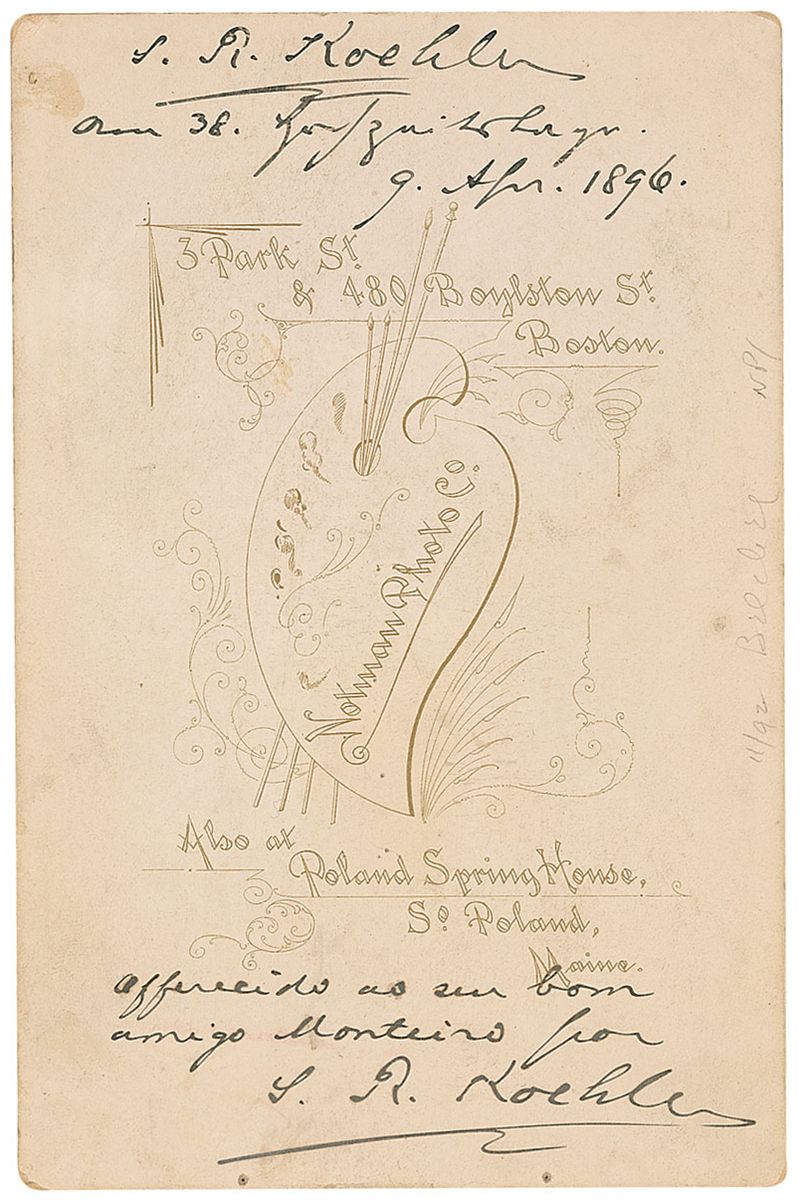 S. R. Koehler
Am 38. Hochzeitstage.
9. Apr. 1896.
3 Park St.
& 480 Boylston St.
Boston.
Notman Photo Co.
Also at
Poland Spring House,
So. Poland,
Maine.
offerecido ao seu bom
amigo Monteiro por
S. R. Koehler
11/92